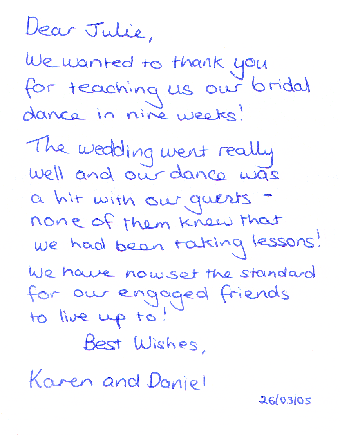 Dear Julie,
We wanted to thank you
for teaching us our bridal
dance in nine weeks!
The wedding went really
well and our dance was
a hit with our guests -
none of them knew that
we had been taking lessons!
We have now set the standard
for our engaged friends
to live up to!
Best Wishes,
Karen and Daniel
26/03/05